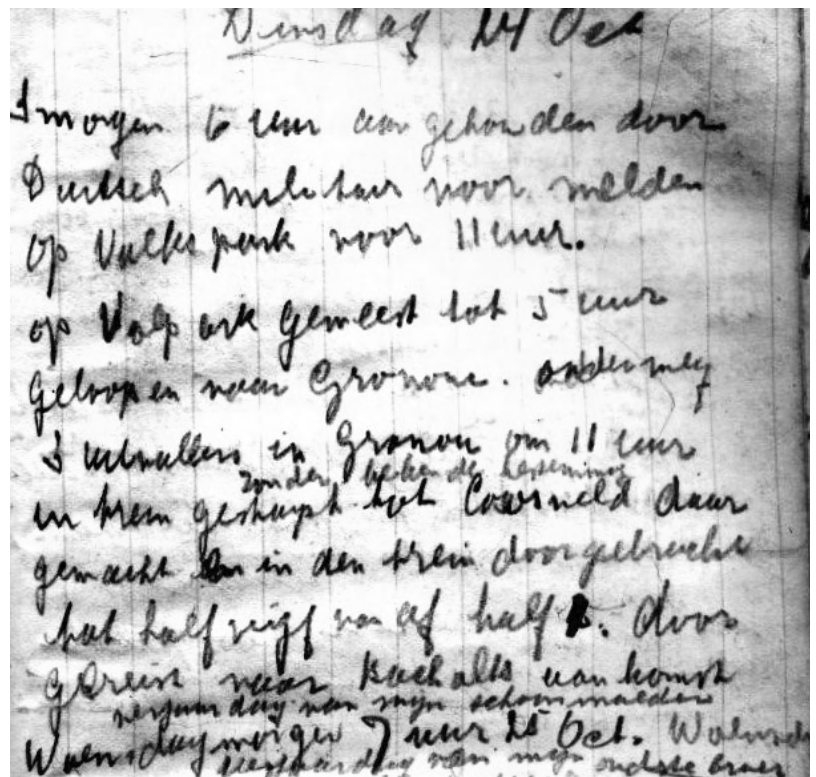 Dinsdag 24 Oct
Smorgen 6 uur aan gehouden door
Duitsch militair voor melden
op Volkspark voor 11 uur.
op Volpark Gemeest tot 5 uur
Geloopen naar Gronou. onderweg
3 uitvallers in Gronou om 11 uur
zonder bekende bestemming
in trein gestapt tot Coosveld daar
gewacht en in den trein door gebracht
tot half vijf van af half door
gereist naar Bocholt aankomst
verjaardag van mijn schoonmoeder
Woensdagmorgen 7 uur 25 Oct. Woensd
verjaardag van mijn oudste broer